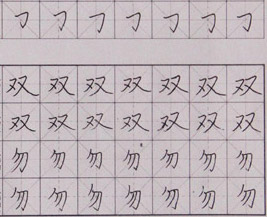 刁 刁 刁 刁 刁 刁 刁
双 双 双 双 双 双 双
双 双 双 双 双 双 双
勿 勿 勿 勿 勿 勿 勿
勿 勿 勿 勿 勿 勿 勿